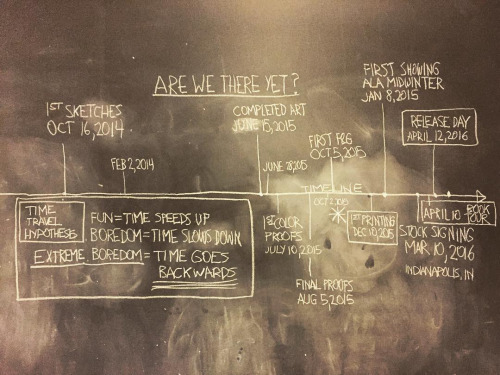 ARE WE THERE YET?
1ST SKETCHES
OCT 16, 2014
FEB 2, 2014
COMPLETED ART
JUNE 15, 2015
JUNE 28, 2015
FIRST F&G
OCT 5, 2015
FIRST SHOWING
ALA MIDWINTER
JAN 8, 2015
RELEASE DAY
APRIL 12, 2016
TIMELINE
1ST COLOR
PROOFS
JULY 10, 2015
FINAL PROOFS
AUG 5, 2015
1ST PRINTING
DEC 10, 2015
APRIL 10
BOOK
TOUR
STOCK SIGNING
MAR 10, 2016
INDIANAPOLIS, IN
TIME
TRAVEL
HYPOTHESES
FUN = TIME SPEEDS UP
BOREDOM = TIME SLOWS DOWN
EXTREME BOREDOM = TIME GOES
BACKWARDS